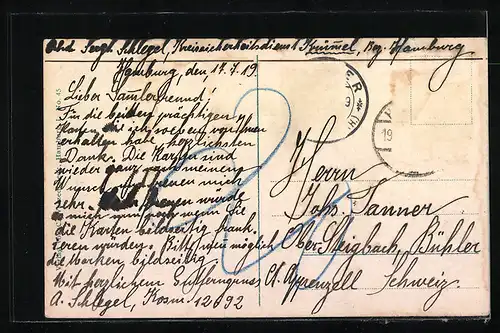 Abs. Sergt. Schlegel, Kreissicherheitsdienst Krümmel, Bez. Hamburg
Hamburg, den 17.7.19.
Lieber Samlerfreund!
Für die beiden prächtigen
Karten die ich soeben von Ihnen
erhalten habe herzlichsten
Dank. Die Karten sind
wieder ganz nach meinem
Wunsch und freuen mich
sehr. freuen würde
es mich nun noch wenn Sie
die Karten bildseitig frank-
ieren würden. Bitte wenn möglich
die Marken bildseitig.
Mit herzlichem Samlergruss
A. Schlegel, Kosm. 12092
Herrn
Johs. Tanner
Ober Steigbach, Bühler
Ct. Appenzell Schweiz